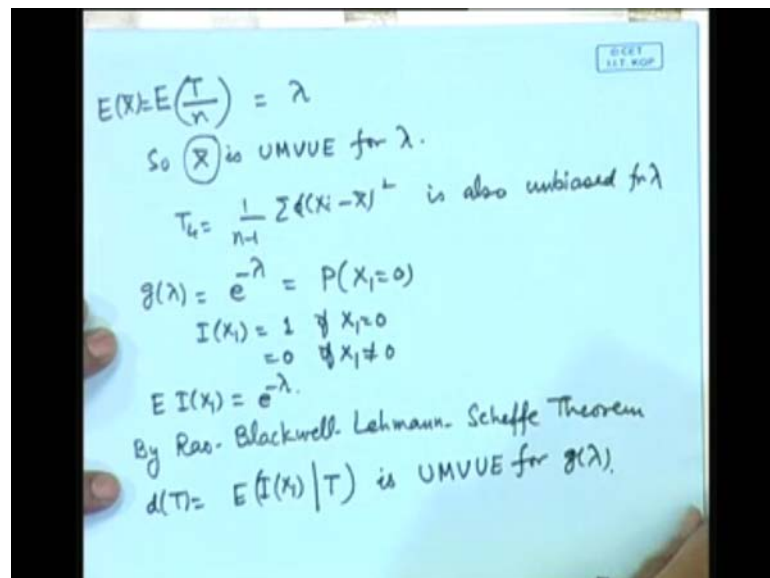 ©CET
I.I.T. KGP
E(X̄)=E(T/n) = λ
So X̄ is UMVUE for λ.
T₄= 1/n-1 Σ((Xi - X̄)² is also unbiased for λ
g(λ) = e^-λ = P(X₁=0)
I(X₁) = 1 if X₁=0
=0 if X₁≠0
E I(X₁) = e^-λ.
By Rao-Blackwell-Lehmann-Scheffe Theorem
d(T)= E(I(X₁)|T) is UMVUE for g(λ).